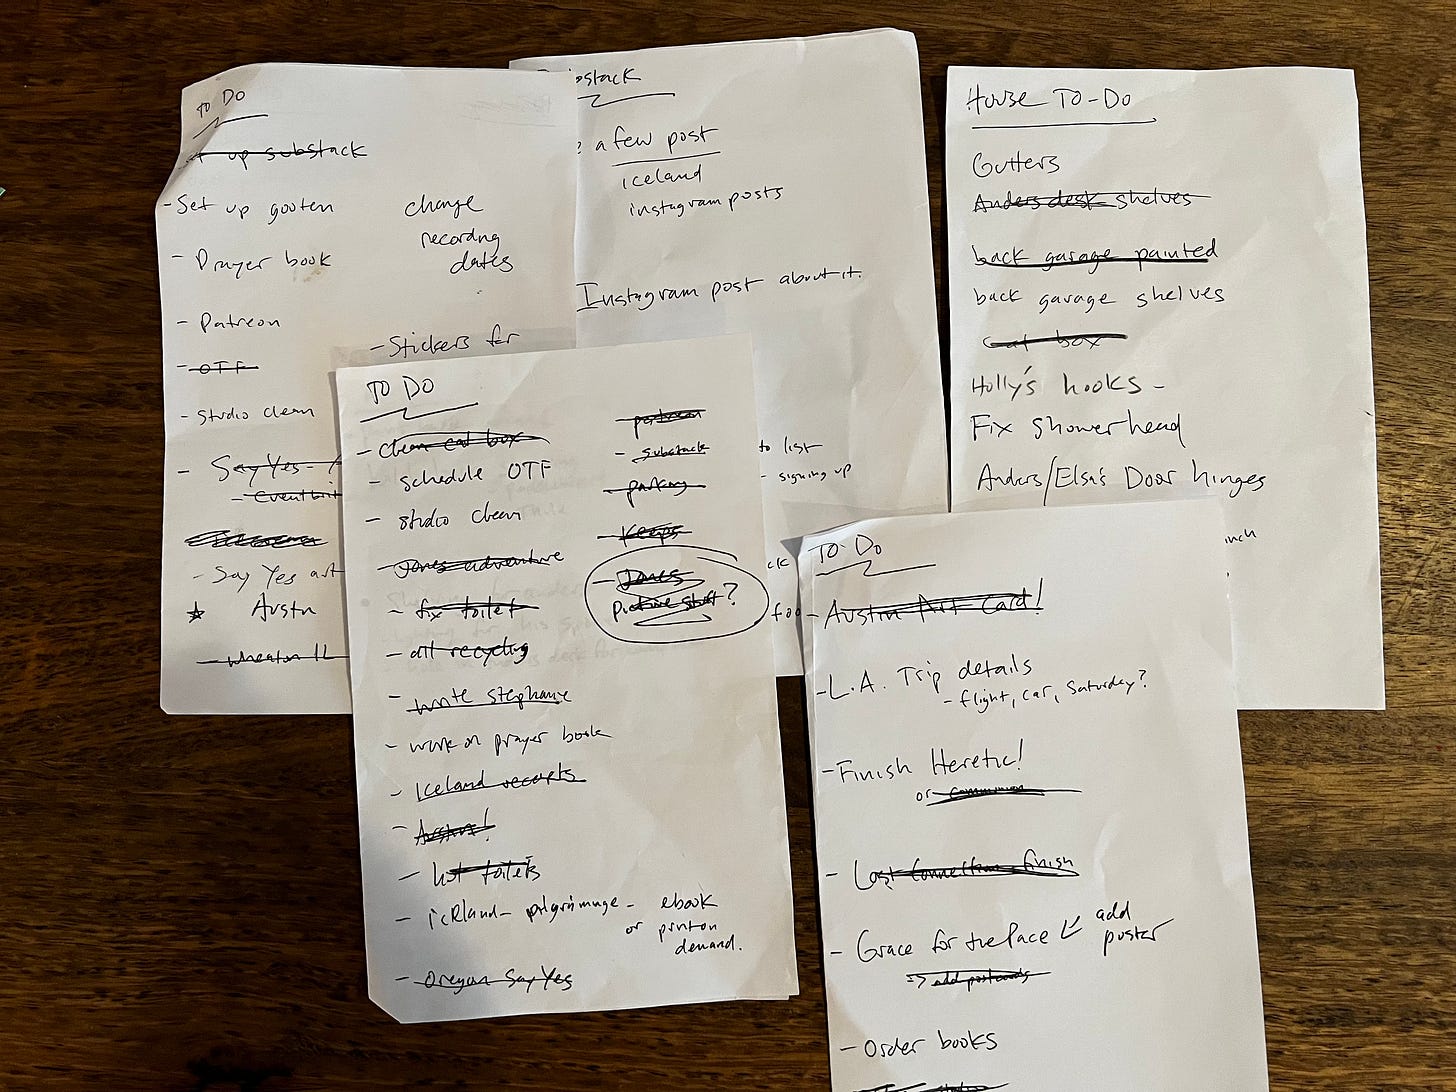 TO DO
up substack
- Set up gooten
- Prayer book
- Patreon
- OTF
- Studio clean
- Say Yes -
- Eventbrit
- Say Yes art
Austin
- Wheaton IL
change
recording
dates
- Stickers for
bstack
a few post
iceland
instagram posts
Instagram post about it.
to list
- signing up
ck
foo
House TO-DO
Gutters
Anders desk shelves
back garage painted
back garage shelves
Cat box
Holly's hooks -
Fix Showerhead
Anders/Elsa's Door hinges
TO DO
- clean cat box
- schedule OTF
- studio clean
- Jones adventure
- fix toilet
- art recycling
- write Stephanie
- work on prayer book
- Iceland receipts
- Austin!
- hot toilets
- iceland - pilgrimage - ebook
or print on
demand.
- Oregon Say Yes
- patreon
- substack
- parking
- Keeps
- Jones
picture stuff?
TO DO
- Austin Art Card!
- L.A. Trip details
- flight, car, Saturday?
- Finish Heretic!
or communion
- Lost Connections finish
- Grace for the Pace
add
poster
=> add postcards
- Order books